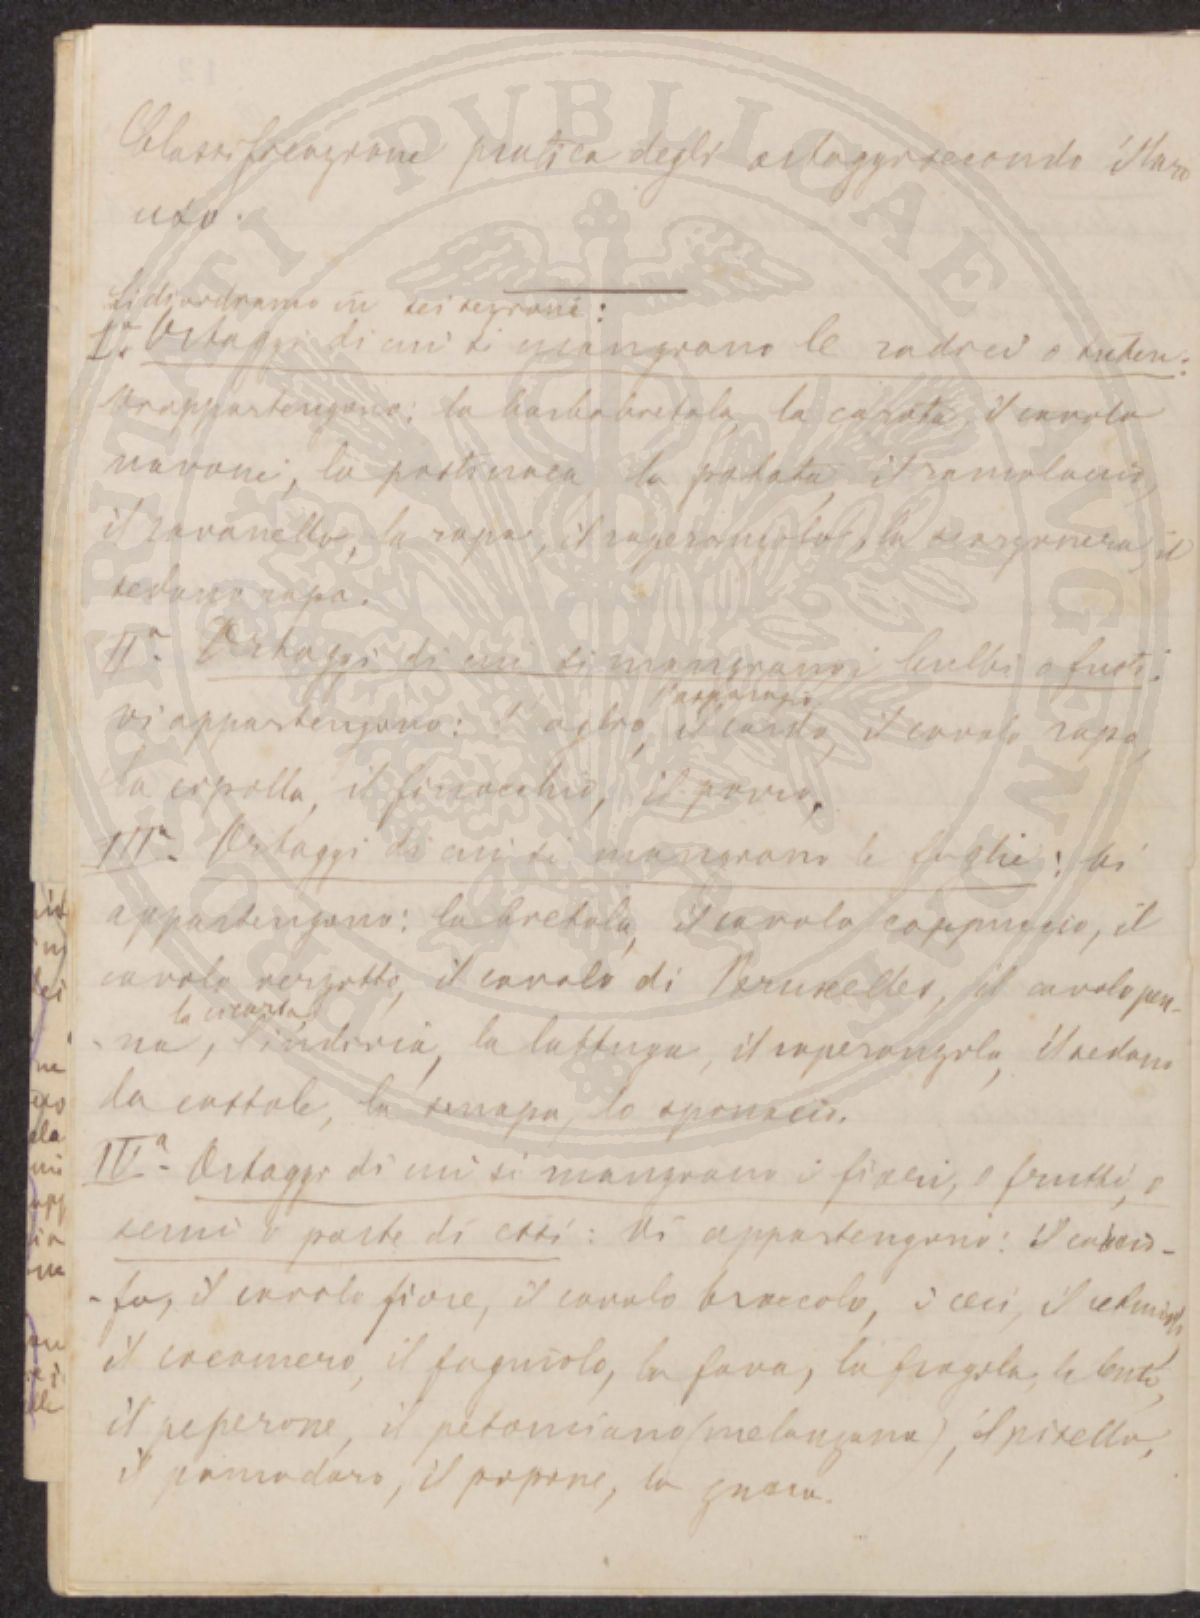 Classificazione pratica degli ortaggi secondo il loro
uso.
Si dividiamo in sei sezioni:
Iª. Ortaggi di cui si mangiano le radici o tuberi:
Vi appartengono: la barbabietola, la carota, il cavolo
navone, la pastinaca la patata, il ramolaccio,
il ravanello, la rapa, il raperonzolo, la scorzonera, il
sedano rapa.
IIª. Ortaggi di cui si mangiano i bulbi o fusti.
l'asparagio
vi appartengono: l'aglio, il cardo, il cavolo rapa,
la cipolla, il finocchio, il porro.
IIIª. Ortaggi di cui si mangiano le foglie: Vi
appartengono: la bietola, il cavolo cappuccio, il
cavolo verzotto, il cavolo di Bruxelles, il cavolo pen-
la cicoria
-na, l'indivia, la lattuga, il raperonzolo, il sedano
da costole, la senapa, lo spinacio.
IVª. Ortaggi di cui si mangiano i fiori, o frutti, o
semi o parte di essi: Vi appartengono: il carcio-
-fo, il cavolo fiore, il cavolo broccolo, i ceci, il cetriolo,
il cocomero, il fagiolo, la fava, la fragola, la lente,
il peperone, il petonciano (melanzana), il pisello,
il pomodoro, il popone, la zucca.